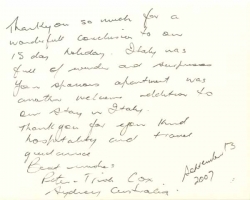 Thankyou so much for a
wonderfull conclusion to our
15 day holiday. Italy was
full of wonder and surprises
Your spacious apartment was
another welcome addition to
our stay in Italy.
Thankyou for your kind
hospitality and travel
guidance
Best wishes
Peter + Trish Cox
Sydney Australia.
September 13
2007